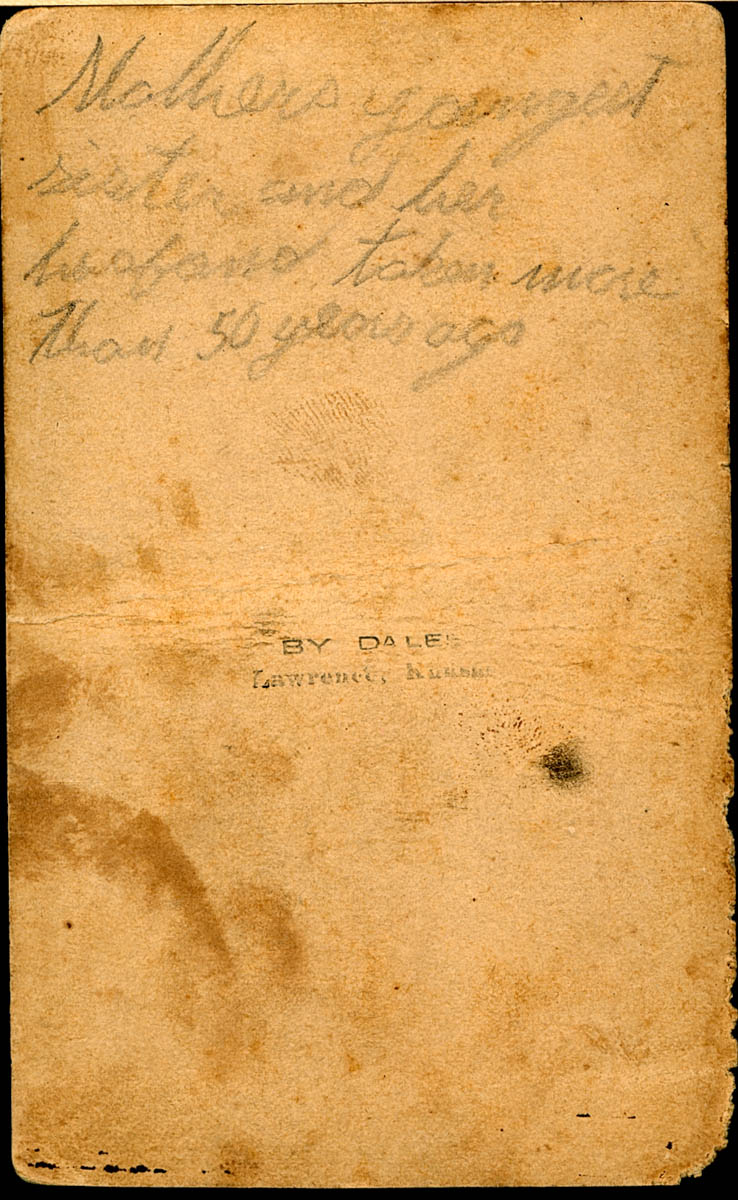 Mothers youngest
sister and her
husband taken more
than 50 years ago
BY DALE
Lawrence, Kansas